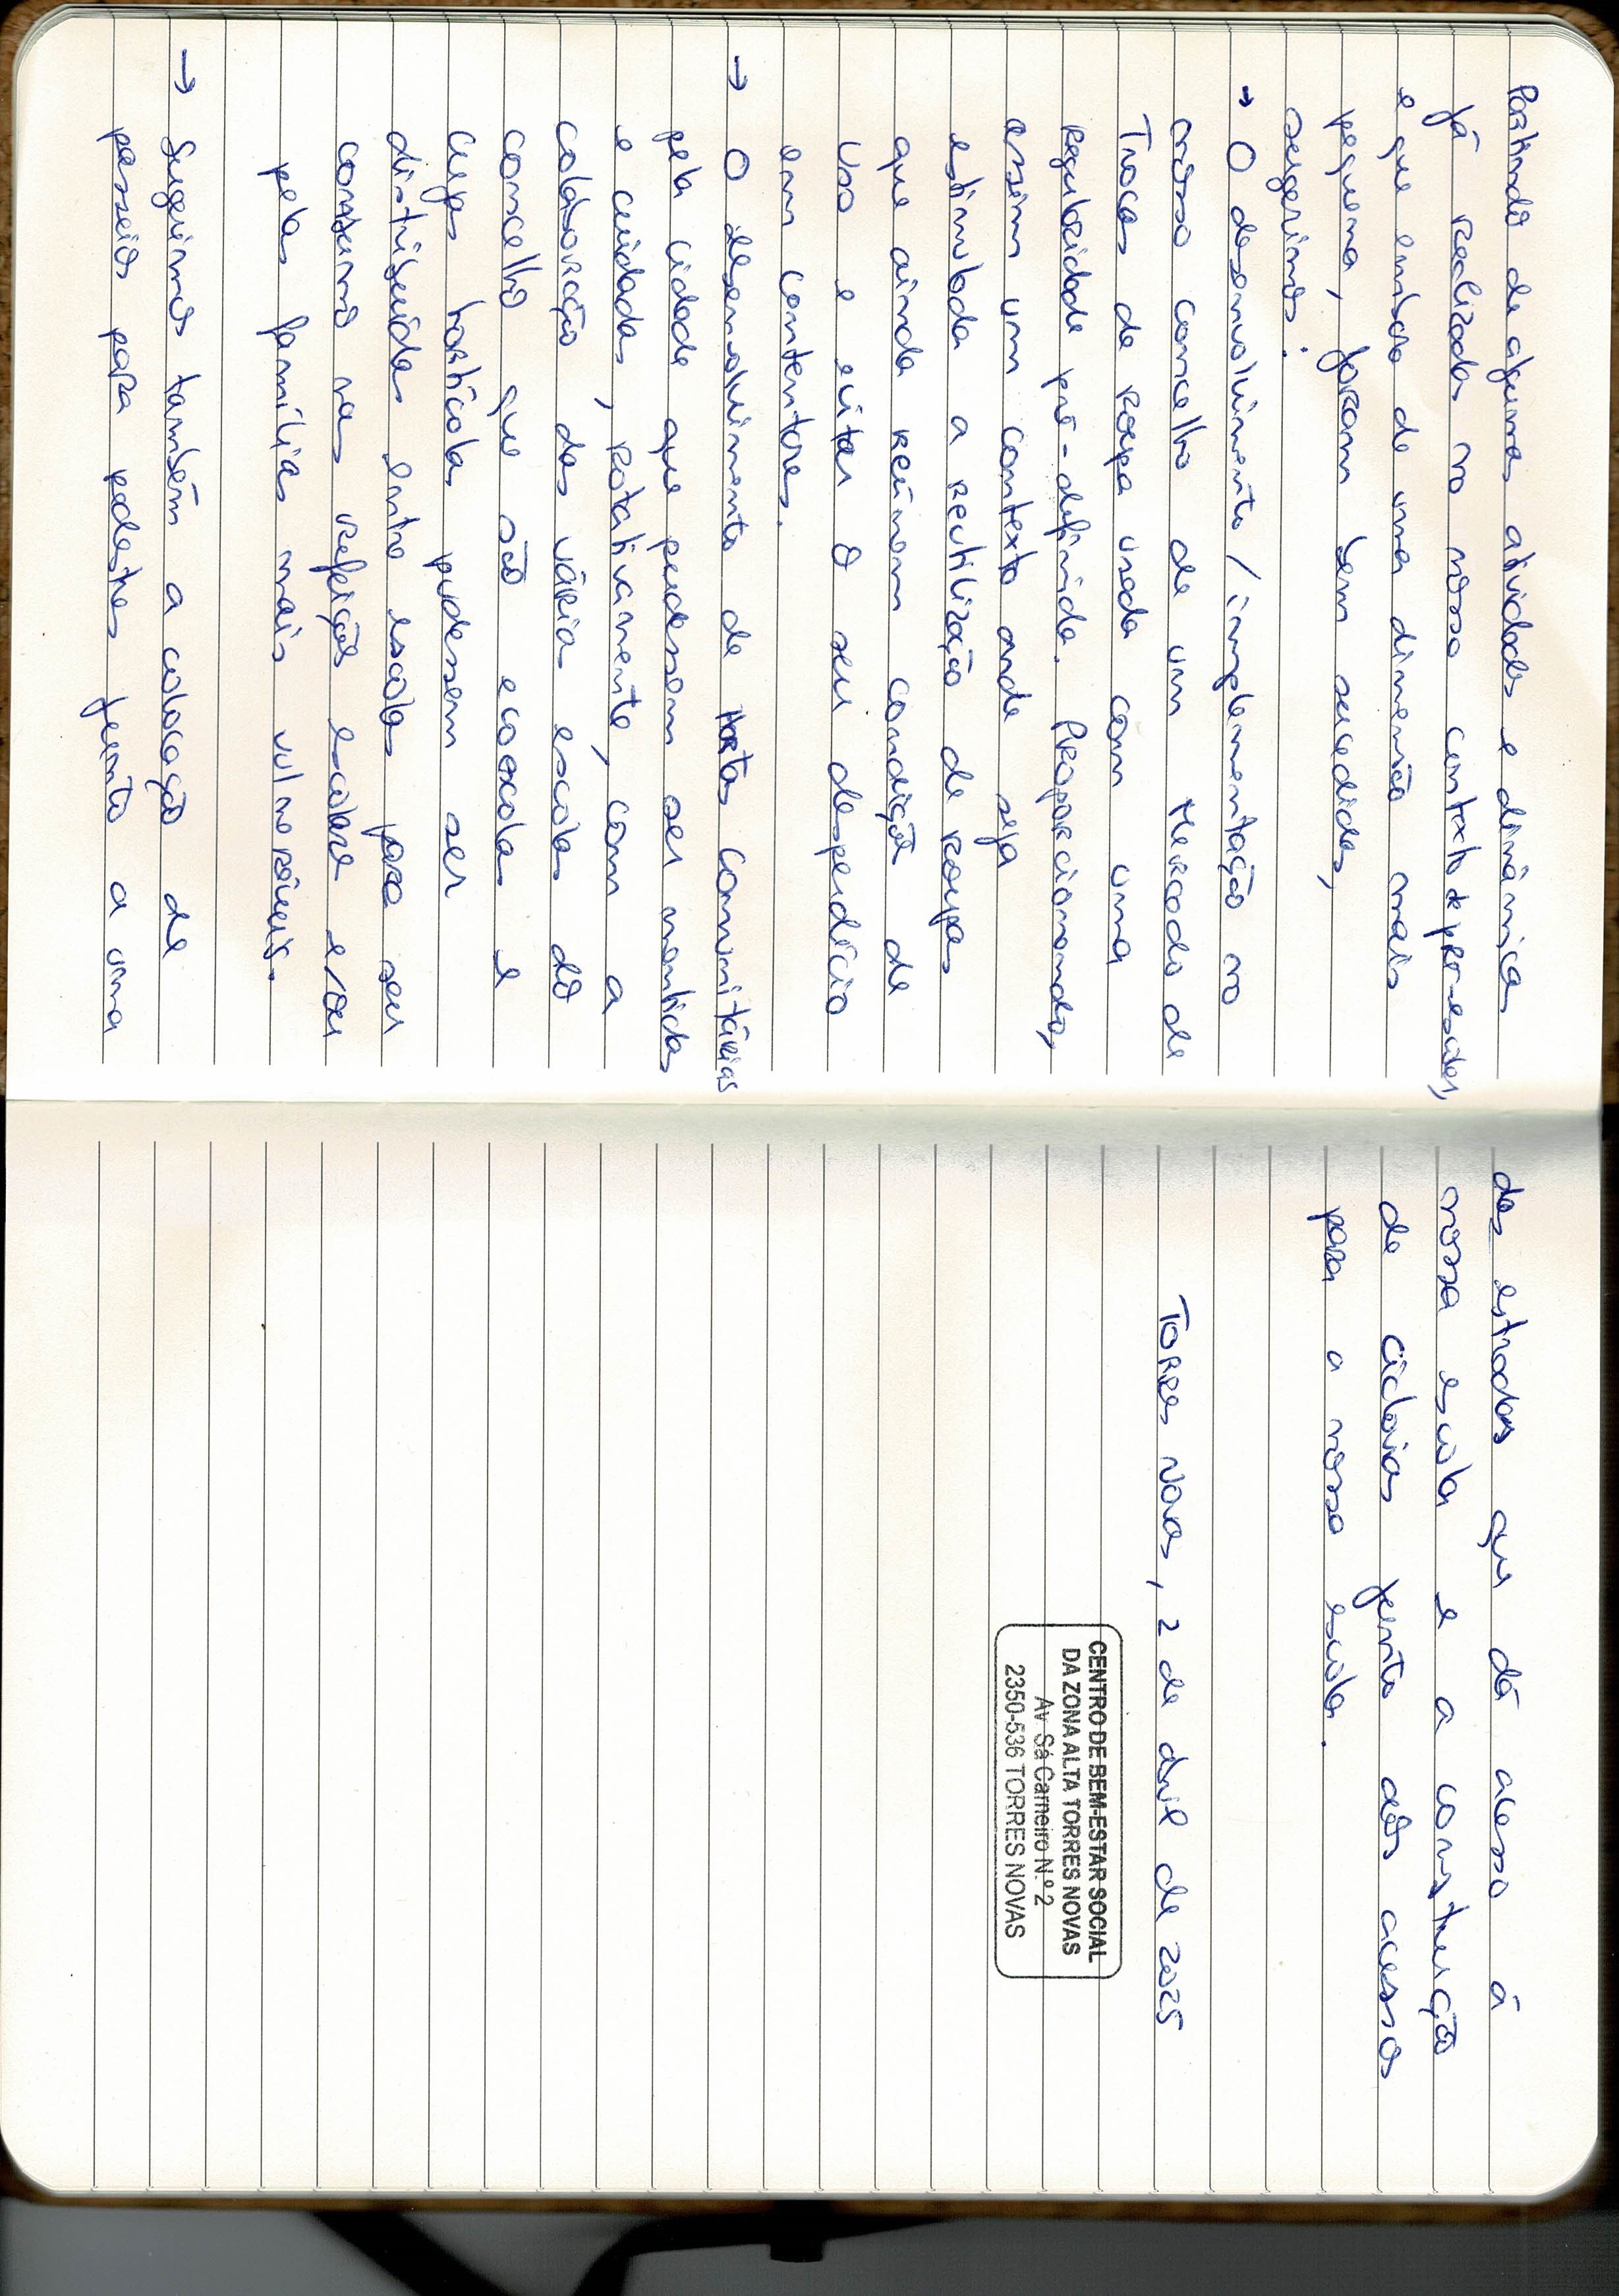 Partindo de algumas atividades e dinâmicas
já realizadas no nosso contexto de pré-escolar,
e que embora de uma dimensão mais
pequena, foram bem sucedidas,
sugerimos:
→ O desenvolvimento / implementação no
nosso concelho de um Mercado de
Trocas de Roupa usada com uma
regularidade pré-definida. Proporcionando,
assim um contexto onde seja
estimulada a reutilização de roupas
que ainda reúnam condições de
uso e evitar o seu desperdício
em contentores.
→ O desenvolvimento de Hortas Comunitárias
pela cidade que pudessem ser mantidas
e cuidadas, rotativamente, com a
colaboração das várias escolas do
concelho que são ecoescola e
cujas hortícolas pudessem ser
distribuídas entre escolas para seu
consumo nas refeições escolares e/ou
pelas famílias mais vulneráveis.
→ Sugerimos também a colocação de
passeios para pedestres junto a uma
das estradas que dá acesso à
nossa escola e a construção
de ciclovias junto aos acessos
para a nossa escola.
Torres Novas, 2 de abril de 2025
CENTRO DE BEM-ESTAR SOCIAL
DA ZONA ALTA TORRES NOVAS
Av. Sá Carneiro N.º 2
2350-536 TORRES NOVAS